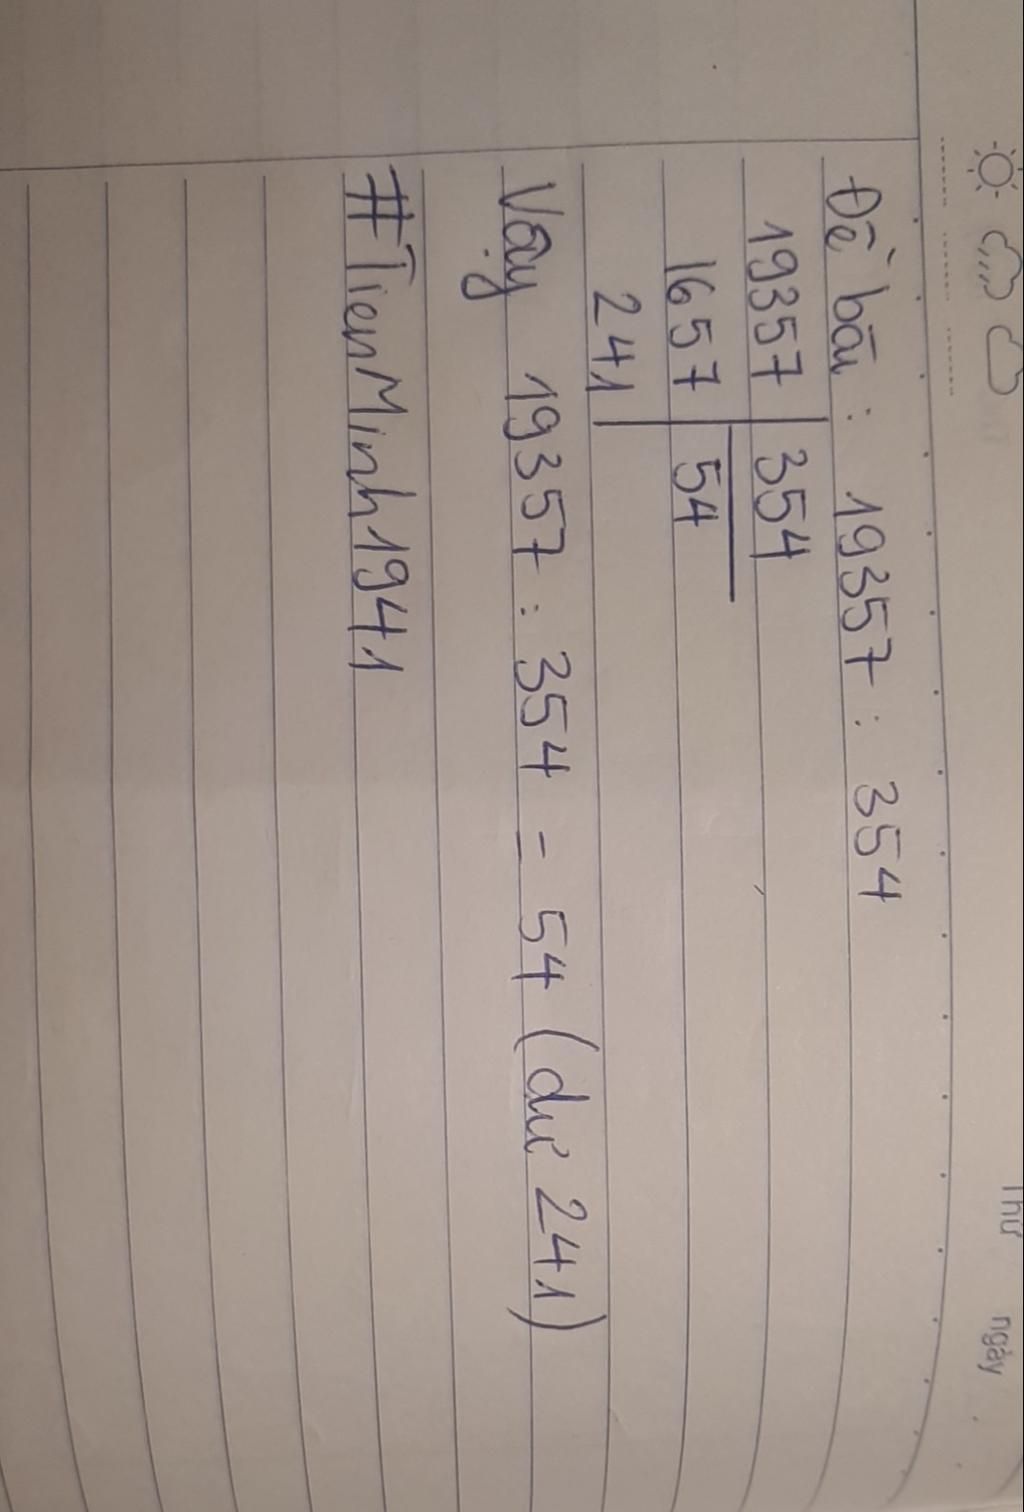 Thứ ngày
Đề bài : 19357 : 354
19357 354
1657 54
241
Vậy 19357 : 354 = 54 (dư 241)
#TienMinh1941